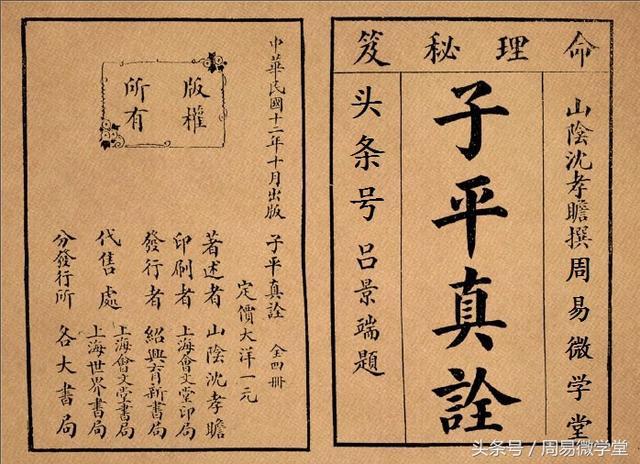 命理秘笈
山陰沈孝瞻撰周易微学堂
子平真詮
头条号吕景端題
版權
所有
中華民國十二年十月出版
子平真詮 全四冊
定價大洋一元
著述者 山陰沈孝瞻
印刷者 上海會文堂印局
發行者 紹興育新書局
代售處 上海會文堂書局
上海世界書局
分發行所 各大書局
头条号 / 周易微学堂